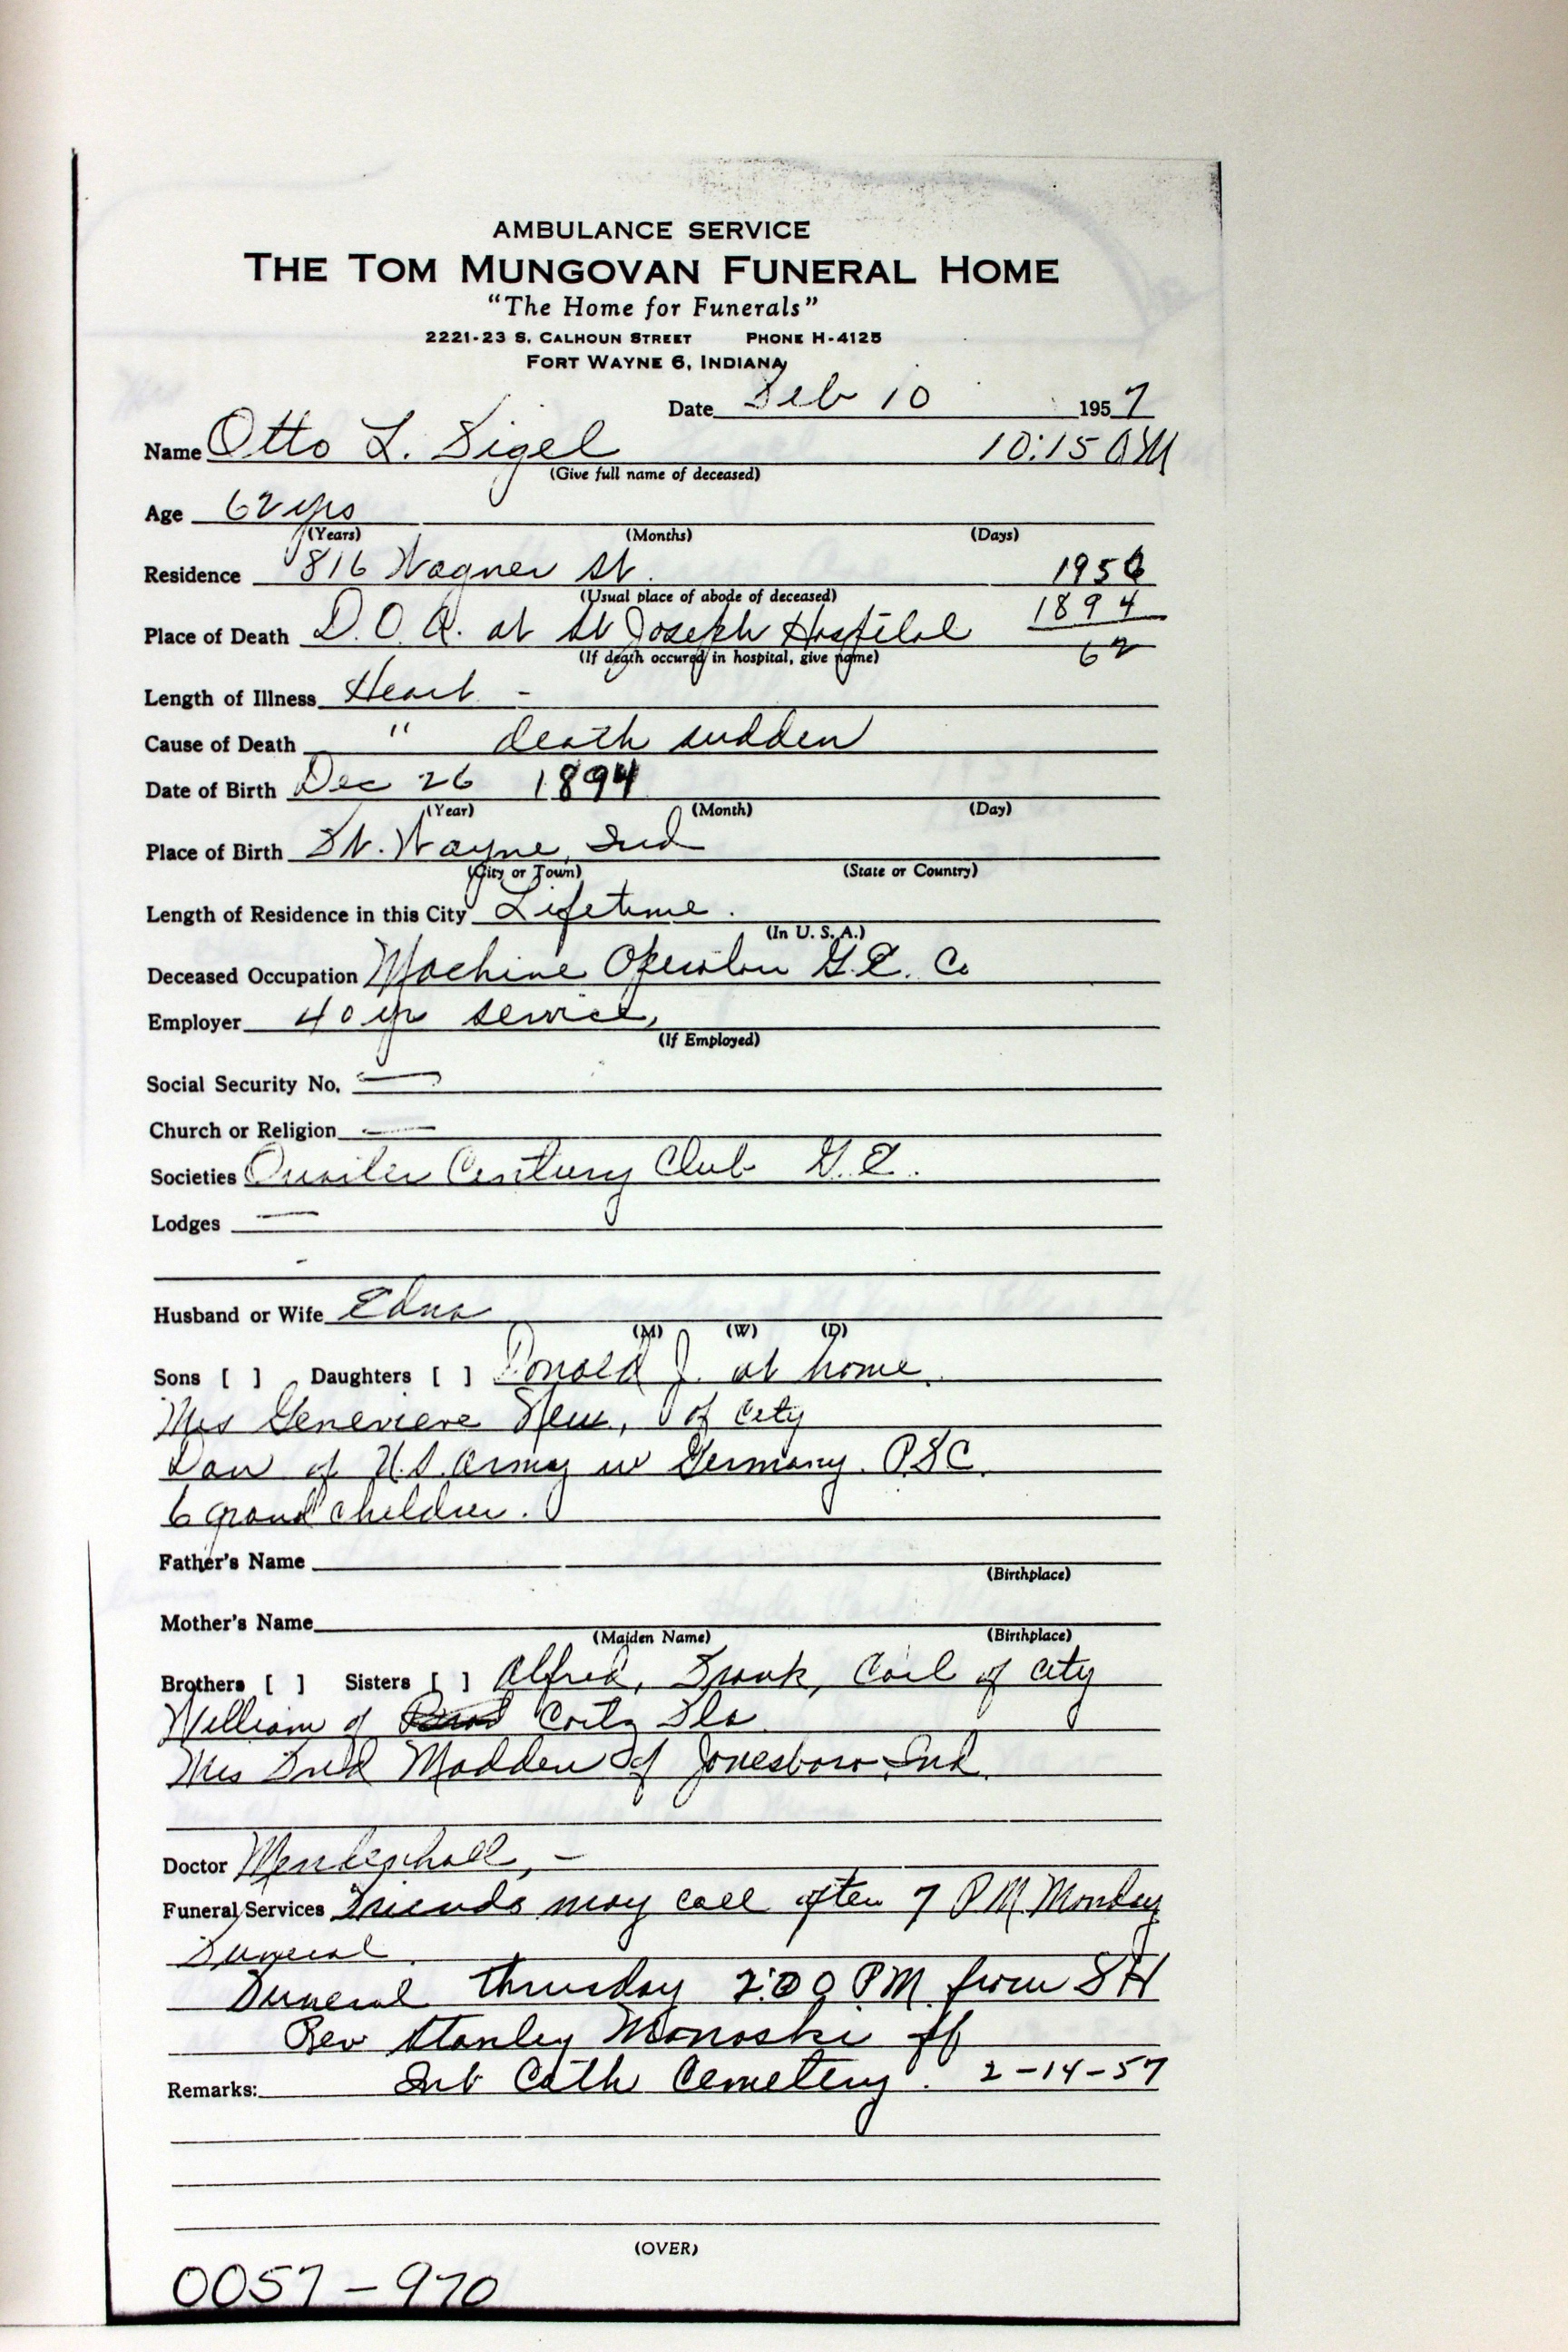 AMBULANCE SERVICE
THE TOM MUNGOVAN FUNERAL HOME
"The Home for Funerals"
2221-23 S. CALHOUN STREET PHONE H-4125
FORT WAYNE 6, INDIANA
Date Feb 10 1957
Name Otto L. Sigel 10:15 AM
(Give full name of deceased)
Age 62 yrs
(Years) (Months) (Days)
Residence 816 Wagner St. 1956
(Usual place of abode of deceased)
1894
Place of Death D.O.A. at St Joseph Hospital 62
(If death occured in hospital, give name)
Length of Illness Heart -
Cause of Death " death sudden
Date of Birth Dec 26 1894
(Year) (Month) (Day)
Place of Birth Ft. Wayne, Ind
(City or Town) (State or Country)
Length of Residence in this City Lifetime.
(In U. S. A.)
Deceased Occupation Machine Operator G.E. Co
Employer 40 yr service,
(If Employed)
Social Security No. —
Church or Religion —
Societies Quarter Century Club G.E.
Lodges —
-
Husband or Wife Edna
(M) (W) (D)
Sons [ ] Daughters [ ] Donald J. at home.
Mrs Genevieve of City
Dan of U.S. Army in Germany. PSC.
6 grand children.
Father's Name
(Birthplace)
Mother's Name
(Maiden Name) (Birthplace)
Brothers [ ] Sisters [ ] Alfred, Frank, Carl of City
William of Fla
Mrs Fred Madden of Jonesboro, Ind.
Doctor Mendenhall, -
Funeral Services Friends may call after 7 PM Monday
Funeral
Funeral Thursday 2:00 PM from FH
Rev Stanley Manoski off
Remarks: Int Cath Cemetery. 2-14-57
(OVER)
0057-970